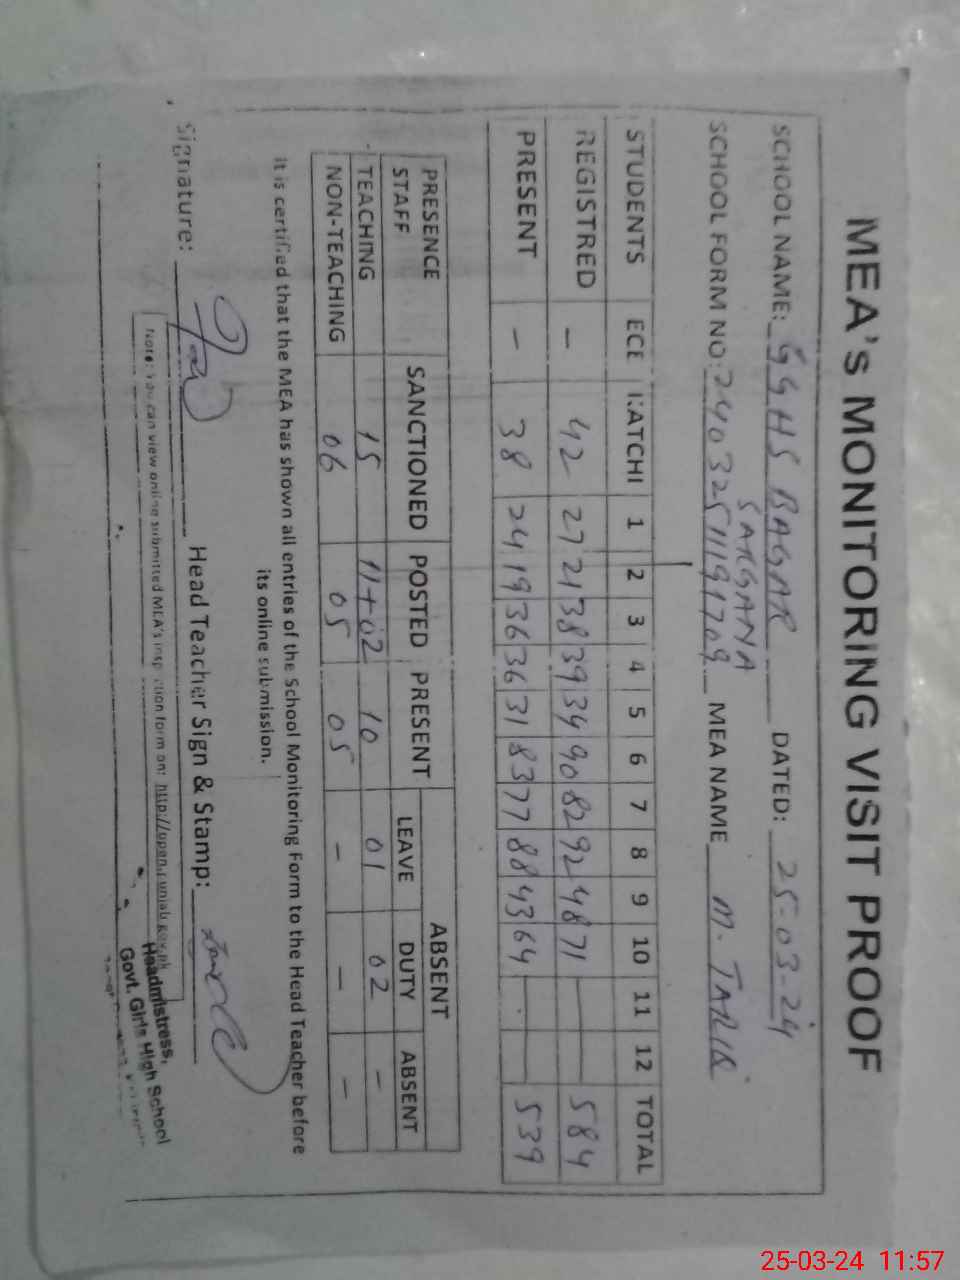 MEA's MONITORING VISIT PROOF
SCHOOL NAME: GGHS BAGAR DATED: 25-03-24
SARGANA
SCHOOL FORM NO: 24032511191709 MEA NAME M. TARIQ
STUDENTS ECE KATCHI 1 2 3 4 5 6 7 8 9 10 11 12 TOTAL
REGISTRED - 42 27 21 38 39 34 90 82 92 48 71 584
PRESENT - 38 24 19 36 36 31 83 77 88 43 64 539
PRESENCE SANCTIONED POSTED PRESENT ABSENT
STAFF LEAVE DUTY ABSENT
TEACHING 15 11+02 10 01 02 -
NON-TEACHING 06 05 05 - - -
It is certified that the MEA has shown all entries of the School Monitoring Form to the Head Teacher before
its online submission.
Signature: Head Teacher Sign & Stamp:
Note: You can view online submitted MEA's inspection form on: http://open.punjab.gov.pk
Headmistress,
Govt. Girls High School
25-03-24 11:57